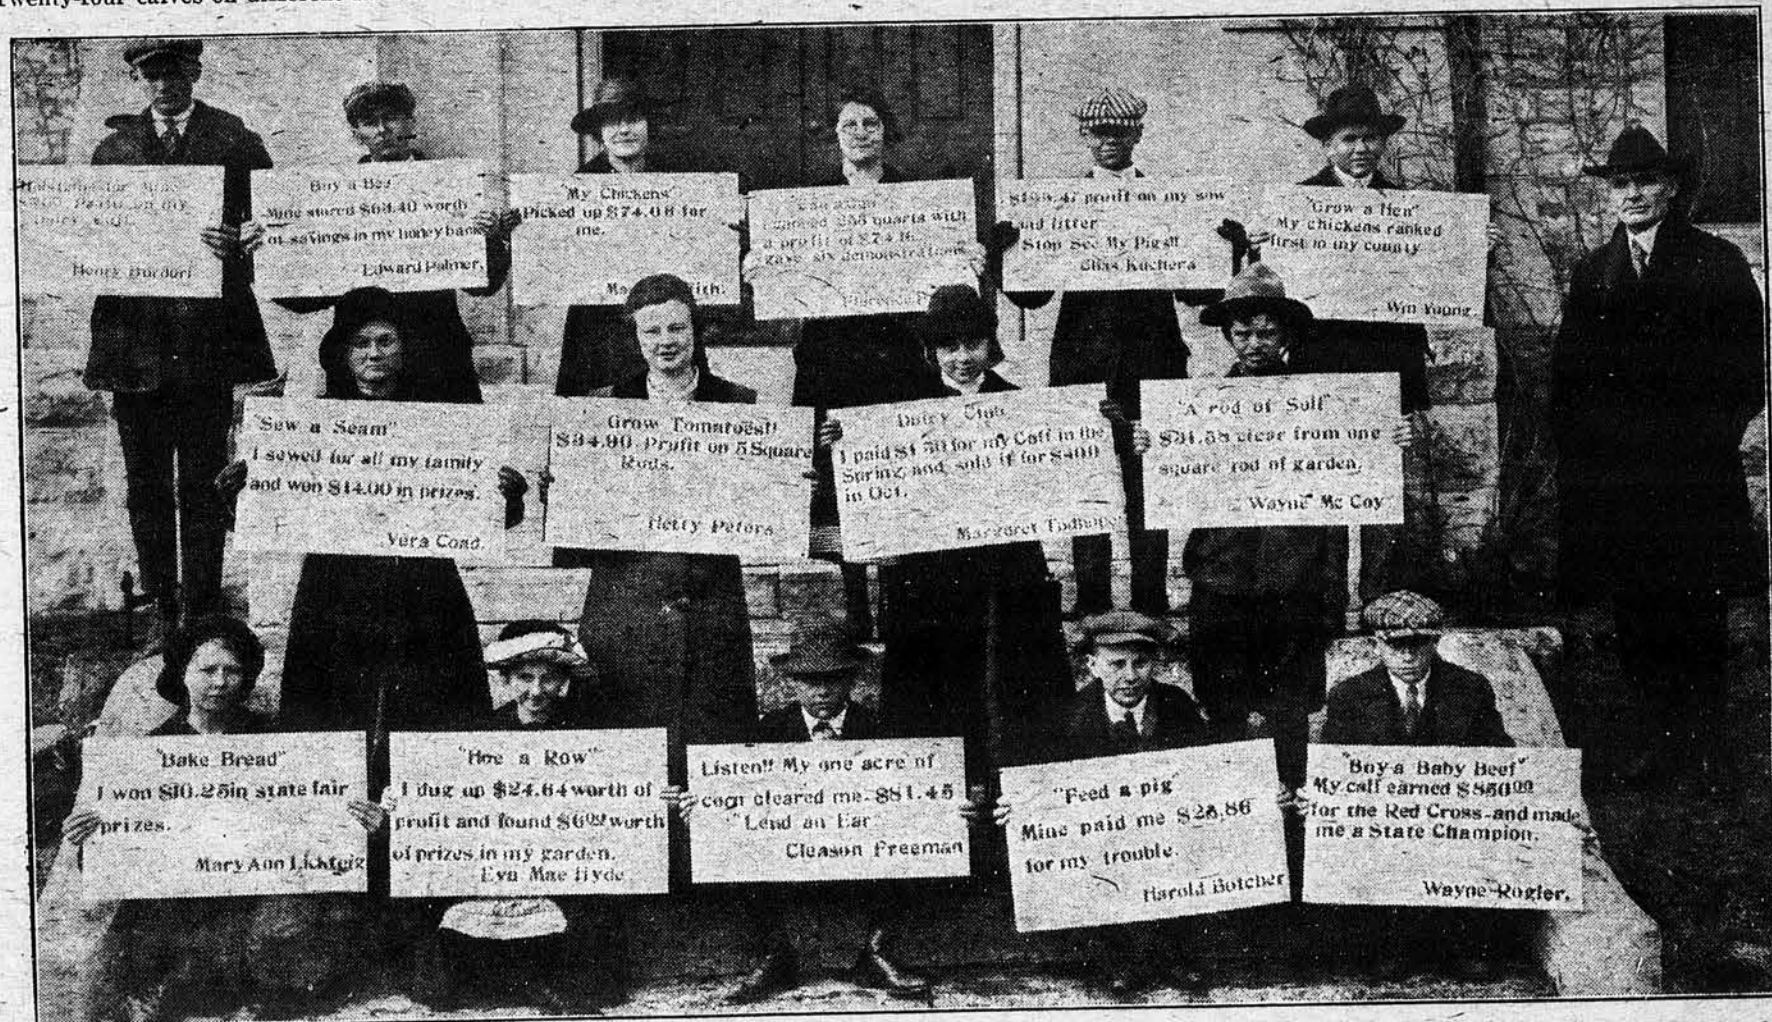 Twenty-four calves on different
Henry Burdorf
Buy a Bee
Mine stored $63.40 worth
of savings in my honey bank
Edward Palmer.
"My Chickens"
Picked up $74.08 for
me.
quarts with
a profit of
gave six demonstrations
profit on my sow
and litter
Stop See My Pigs!!
Chas Kuchera
"Grow a Hen"
My chickens ranked
first in my county
Wm Young.
"Sew a Seam"
I sewed for all my family
and won $14.00 in prizes.
Vera Coad.
Grow Tomatoes!!
$34.90 Profit on 5 Square
Rods.
Hetty Peters
Dairy Club
I paid for my Calf in the
Spring, and sold it for
in Oct.
Margaret
"A rod of Soil"
clear from one
square rod of garden.
Wayne Mc Coy
"Bake Bread"
I won $10.25 in state fair
prizes.
Mary Ann Lichteig
"Hoe a Row"
I dug up $24.64 worth of
profit and found $6.00 worth
of prizes in my garden.
Eva Mae Hyde
Listen!! My one acre of
corn cleared me $81.45
"Lend an Ear
Gleason Freeman
"Feed a pig"
Mine paid me $28.86
for my trouble.
Harold Botcher
"Buy a Baby Beef"
My calf earned $850.00
for the Red Cross and made
me a State Champion.
Wayne Rogler.